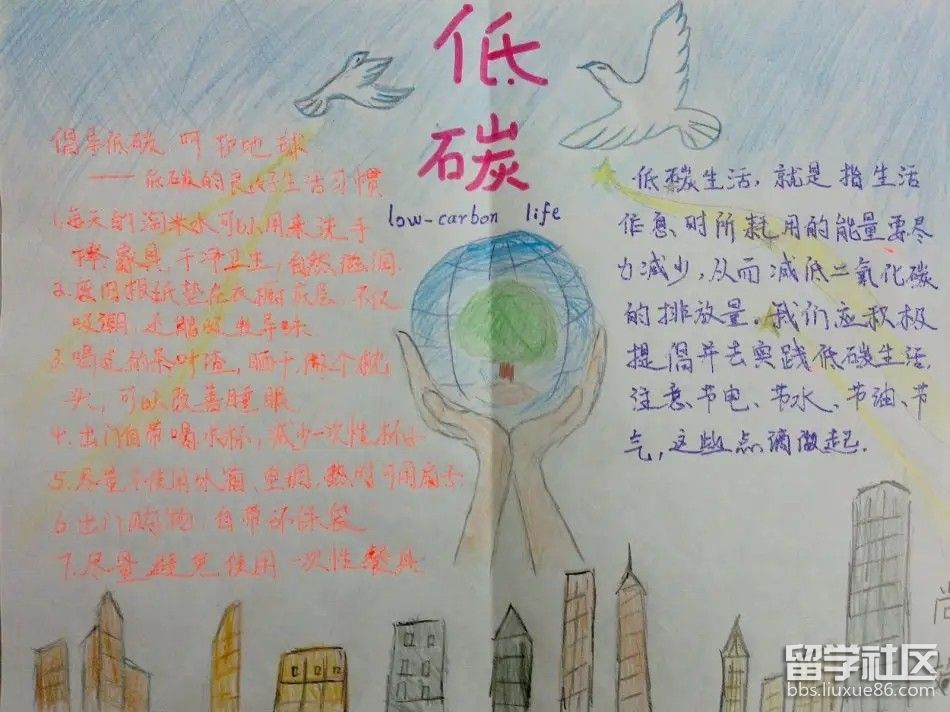 低
碳
low-carbon life
倡导低碳 呵护地球
——低碳的良好生活习惯
1.每天的淘米水可以用来洗手
擦家具,干净卫生,自然滋润.
2.废旧报纸垫在衣橱底层,不仅
吸潮,还能吸收异味
3.喝过的茶叶渣,晒干,做个枕
头,可以改善睡眠
4.出门自带喝水杯,减少一次性杯
5.尽量不使用冰箱、空调,热时可用扇子
6.出门购物,自带环保袋
7.尽量避免使用一次性餐具
低碳生活,就是指生活
作息时所耗用的能量要尽
力减少,从而减低二氧化碳
的排放量。我们应积极
提倡并去实践低碳生活,
注意节电、节水、节油、节
气,这些点滴做起.
尚
留学社区
bbs.liuxue86.com